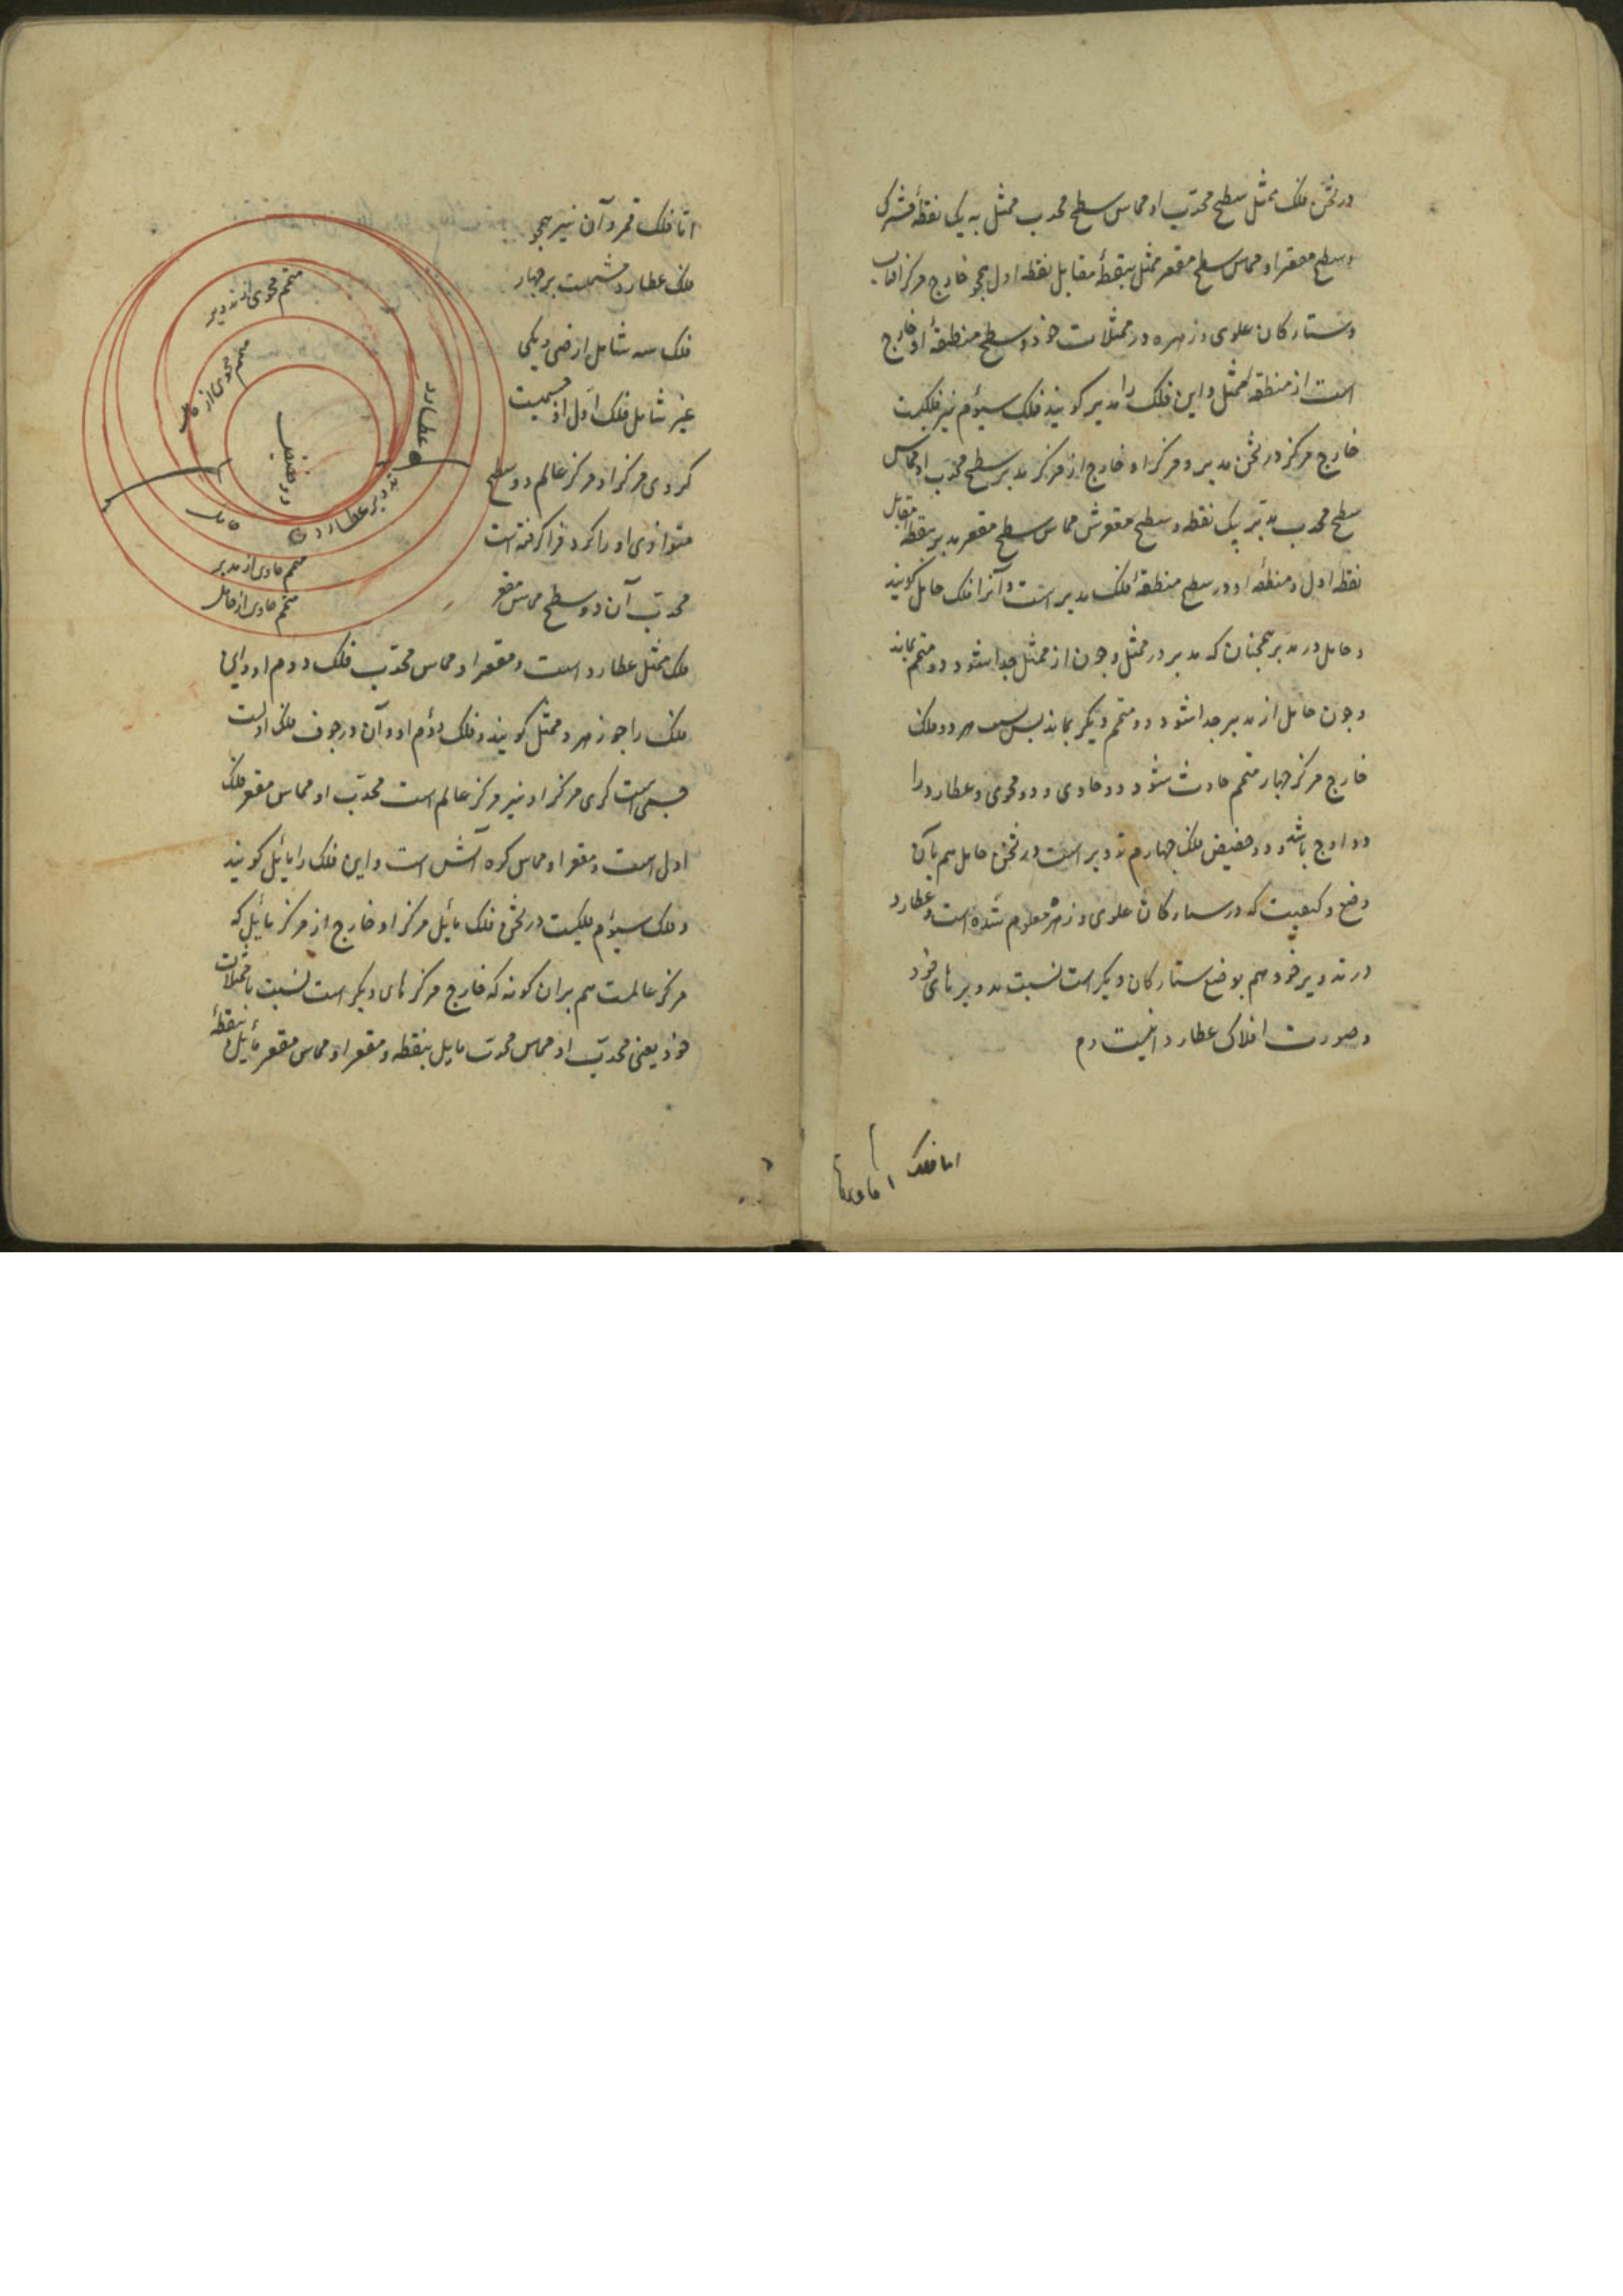 در ثخن فلک ممثل سطح محدب او مماس سطح محدب ممثل به یک نقطهٔ مشترک
و سطح مقعر او مماس سطح مقعر ممثل بنقطهٔ مقابل نقطه اول همچو خارج مرکز آفتاب
و ستارکان علوی و زهره در ممثلات خود و سطح منطقهٔ او خارج
است از منطقهٔ ممثل و این فلک را مدیر کویند فلک سیوم نیز فلکیست
خارج مرکز در ثخن مدیر و مرکز او خارج از مرکز مدیر سطح محدب او مماس
سطح محدب مدیر بیک نقطه و سطح مقعرش مماس سطح مقعر مدیر بنقطهٔ مقابل
نقطهٔ اول و منطقهٔ او در سطح منطقهٔ فلک مدیر است و آنرا فلک حامل کویند
و حامل در مدیر همچنان که مدیر در ممثل و چون از ممثل جدا شود دو متمم بماند
و چون حامل از مدیر جدا شود دو متمم دیکر بماند پس بسبب هر دو فلک
خارج مرکز چهار متمم حادث شود دو حاوی و دو محوی و عطارد را
دو اوج باشد و دو حضیض فلک چهارم تدویر است در ثخن حامل هم بآن
وضع و کیفیت که در ستارکان علوی و زهره معلوم شده است و عطارد
در تدویر خود هم بوضع ستارکان دیکر است نسبت بتدویر های خود
و صورت افلاک عطارد اینست
اما فلک
اما فلک قمر و آن نیز همچو
فلک عطارد مشتملست بر چهار
فلک سه شامل ارض و یکی
غیر شامل فلک اول از جسمیست
کروی مرکز او مرکز عالم دو سطح
متوازی او را کرد فرا کرفته است
محدب آن دو سطح مماس مقعر
فلک ممثل عطارد است و مقعر او مماس محدب فلک دوم او و این
فلک را جوزهر و ممثل کویند و فلک دوم او و آن در جوف فلک اولست
جسمی است کری مرکز او نیز مرکز عالم است محدب او مماس مقعر فلک
اول است و مقعر او مماس کره آتش است و این فلک را مائل کویند
و فلک سیوم فلکیست در ثخن فلک مائل مرکز او خارج از مرکز مائل که
مرکز عالمست هم بران کونه که خارج مرکز های دیکر است نسبت با ممثلات
خود یعنی محدب او مماس محدب مایل بنقطه و مقعر او مماس مقعر مائل بنقطهٔ
متمم محوی از مدیر
متمم محوی از حامل
عطارد
تدویر عطارد
حامل
متمم حاوی از مدیر
متمم حاوی از حامل